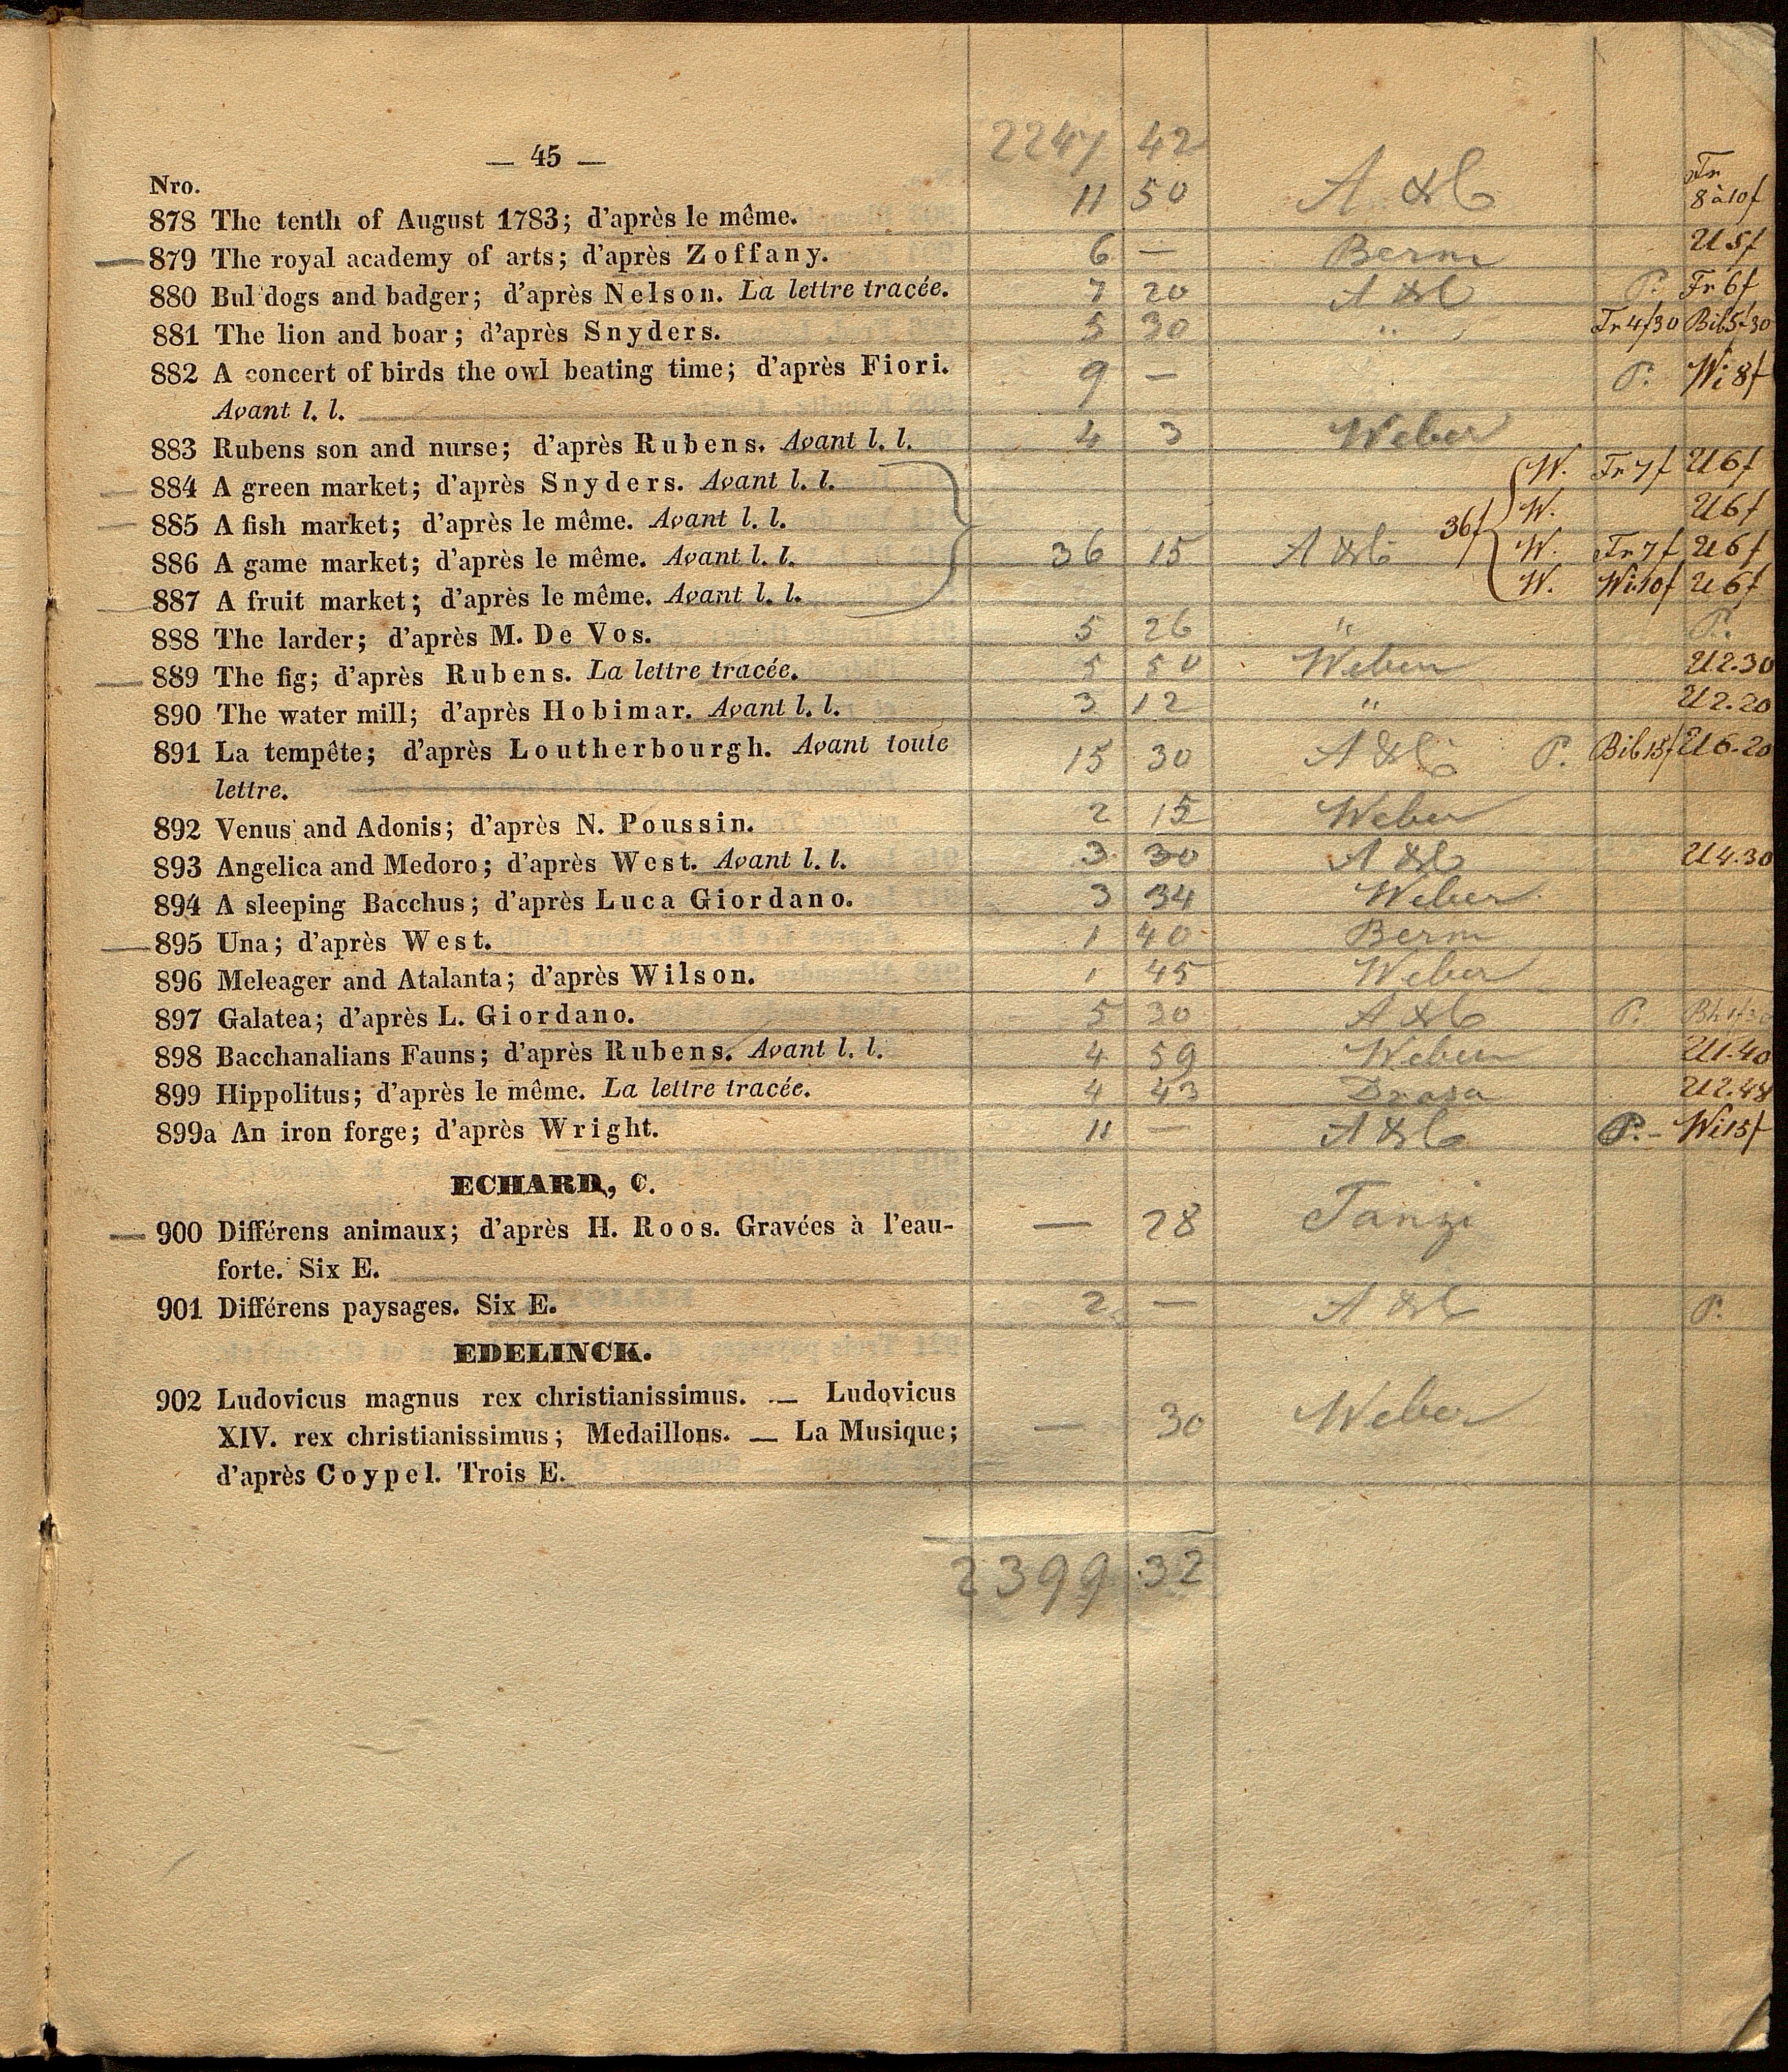 2247 42
— 45 —
Nro.
878 The tenth of August 1783; d'après le même. 11 50 A & C Fr 8 à 10 f
879 The royal academy of arts; d'après Zoffany. 6 — Berm U 5 f
880 Bul dogs and badger; d'après Nelson. La lettre tracée. 7 20 A & C P. Fr 6 f
881 The lion and boar; d'après Snyders. 5 30 " Fr 4 f 30 Bib 5.30
882 A concert of birds the owl beating time; d'après Fiori. 9 — " P. Wi 8 f
Avant l. l.
883 Rubens son and nurse; d'après Rubens. Avant l. l. 4 3 Weber
884 A green market; d'après Snyders. Avant l. l. W. Fr 7 f U 6 f
885 A fish market; d'après le même. Avant l. l. W. U 6 f
886 A game market; d'après le même. Avant l. l. 36 15 A & C 36 f W. Fr 7 f U 6 f
887 A fruit market; d'après le même. Avant l. l. W. Wi 10 f U 6 f
888 The larder; d'après M. De Vos. 5 26 " P.
889 The fig; d'après Rubens. La lettre tracée. 5 50 Weber U 2.30
890 The water mill; d'après Hobimar. Avant l. l. 3 12 " U 2.20
891 La tempête; d'après Loutherbourgh. Avant toute 15 30 A & C P. Bib 15 f U 6.20
lettre.
892 Venus and Adonis; d'après N. Poussin. 2 15 Weber
893 Angelica and Medoro; d'après West. Avant l. l. 3 30 A & C U 4.30
894 A sleeping Bacchus; d'après Luca Giordano. 3 34 Weber
895 Una; d'après West. 1 40 Berm
896 Meleager and Atalanta; d'après Wilson. 1 45 Weber
897 Galatea; d'après L. Giordano. 5 30 A & C P.
898 Bacchanalians Fauns; d'après Rubens. Avant l. l. 4 59 Weber U 1.40
899 Hippolitus; d'après le même. La lettre tracée. 4 43 U 2.48
899a An iron forge; d'après Wright. 11 — A & C P. - Wi 15 f
ECHARD, C.
900 Différens animaux; d'après H. Roos. Gravées à l'eau- — 28 Tanzi
forte. Six E.
901 Différens paysages. Six E. 2 — A & C P.
EDELINCK.
902 Ludovicus magnus rex christianissimus. — Ludovicus
XIV. rex christianissimus; Medaillons. — La Musique; — 30 Weber
d'après Coypel. Trois E.
2399 32